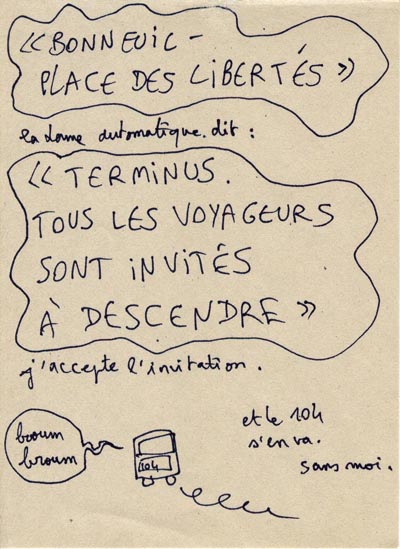 « BONNEUIL -
PLACE DES LIBERTÉS »
la dame automatique dit :
« TERMINUS.
TOUS LES VOYAGEURS
SONT INVITÉS
À DESCENDRE »
j'accepte l'invitation.
et le 104
s'en va.
sans moi.
broum
broum
104